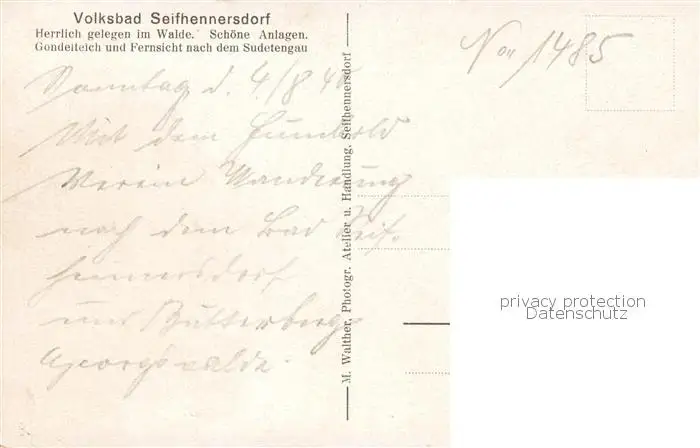 Volksbad Seifhennersdorf
Herrlich gelegen im Walde. Schöne Anlagen.
Gondelteich und Fernsicht nach dem Sudetengau
Sonntag d. 4/8 40
Mit dem Humbold
Verein Wanderung
nach dem Bad Seif-
hennersdorf
und Butterberg
Georgswalde.
M. Walther, Photogr. Atelier u. Handlung, Seifhennersdorf
No 1485
privacy protection
Datenschutz